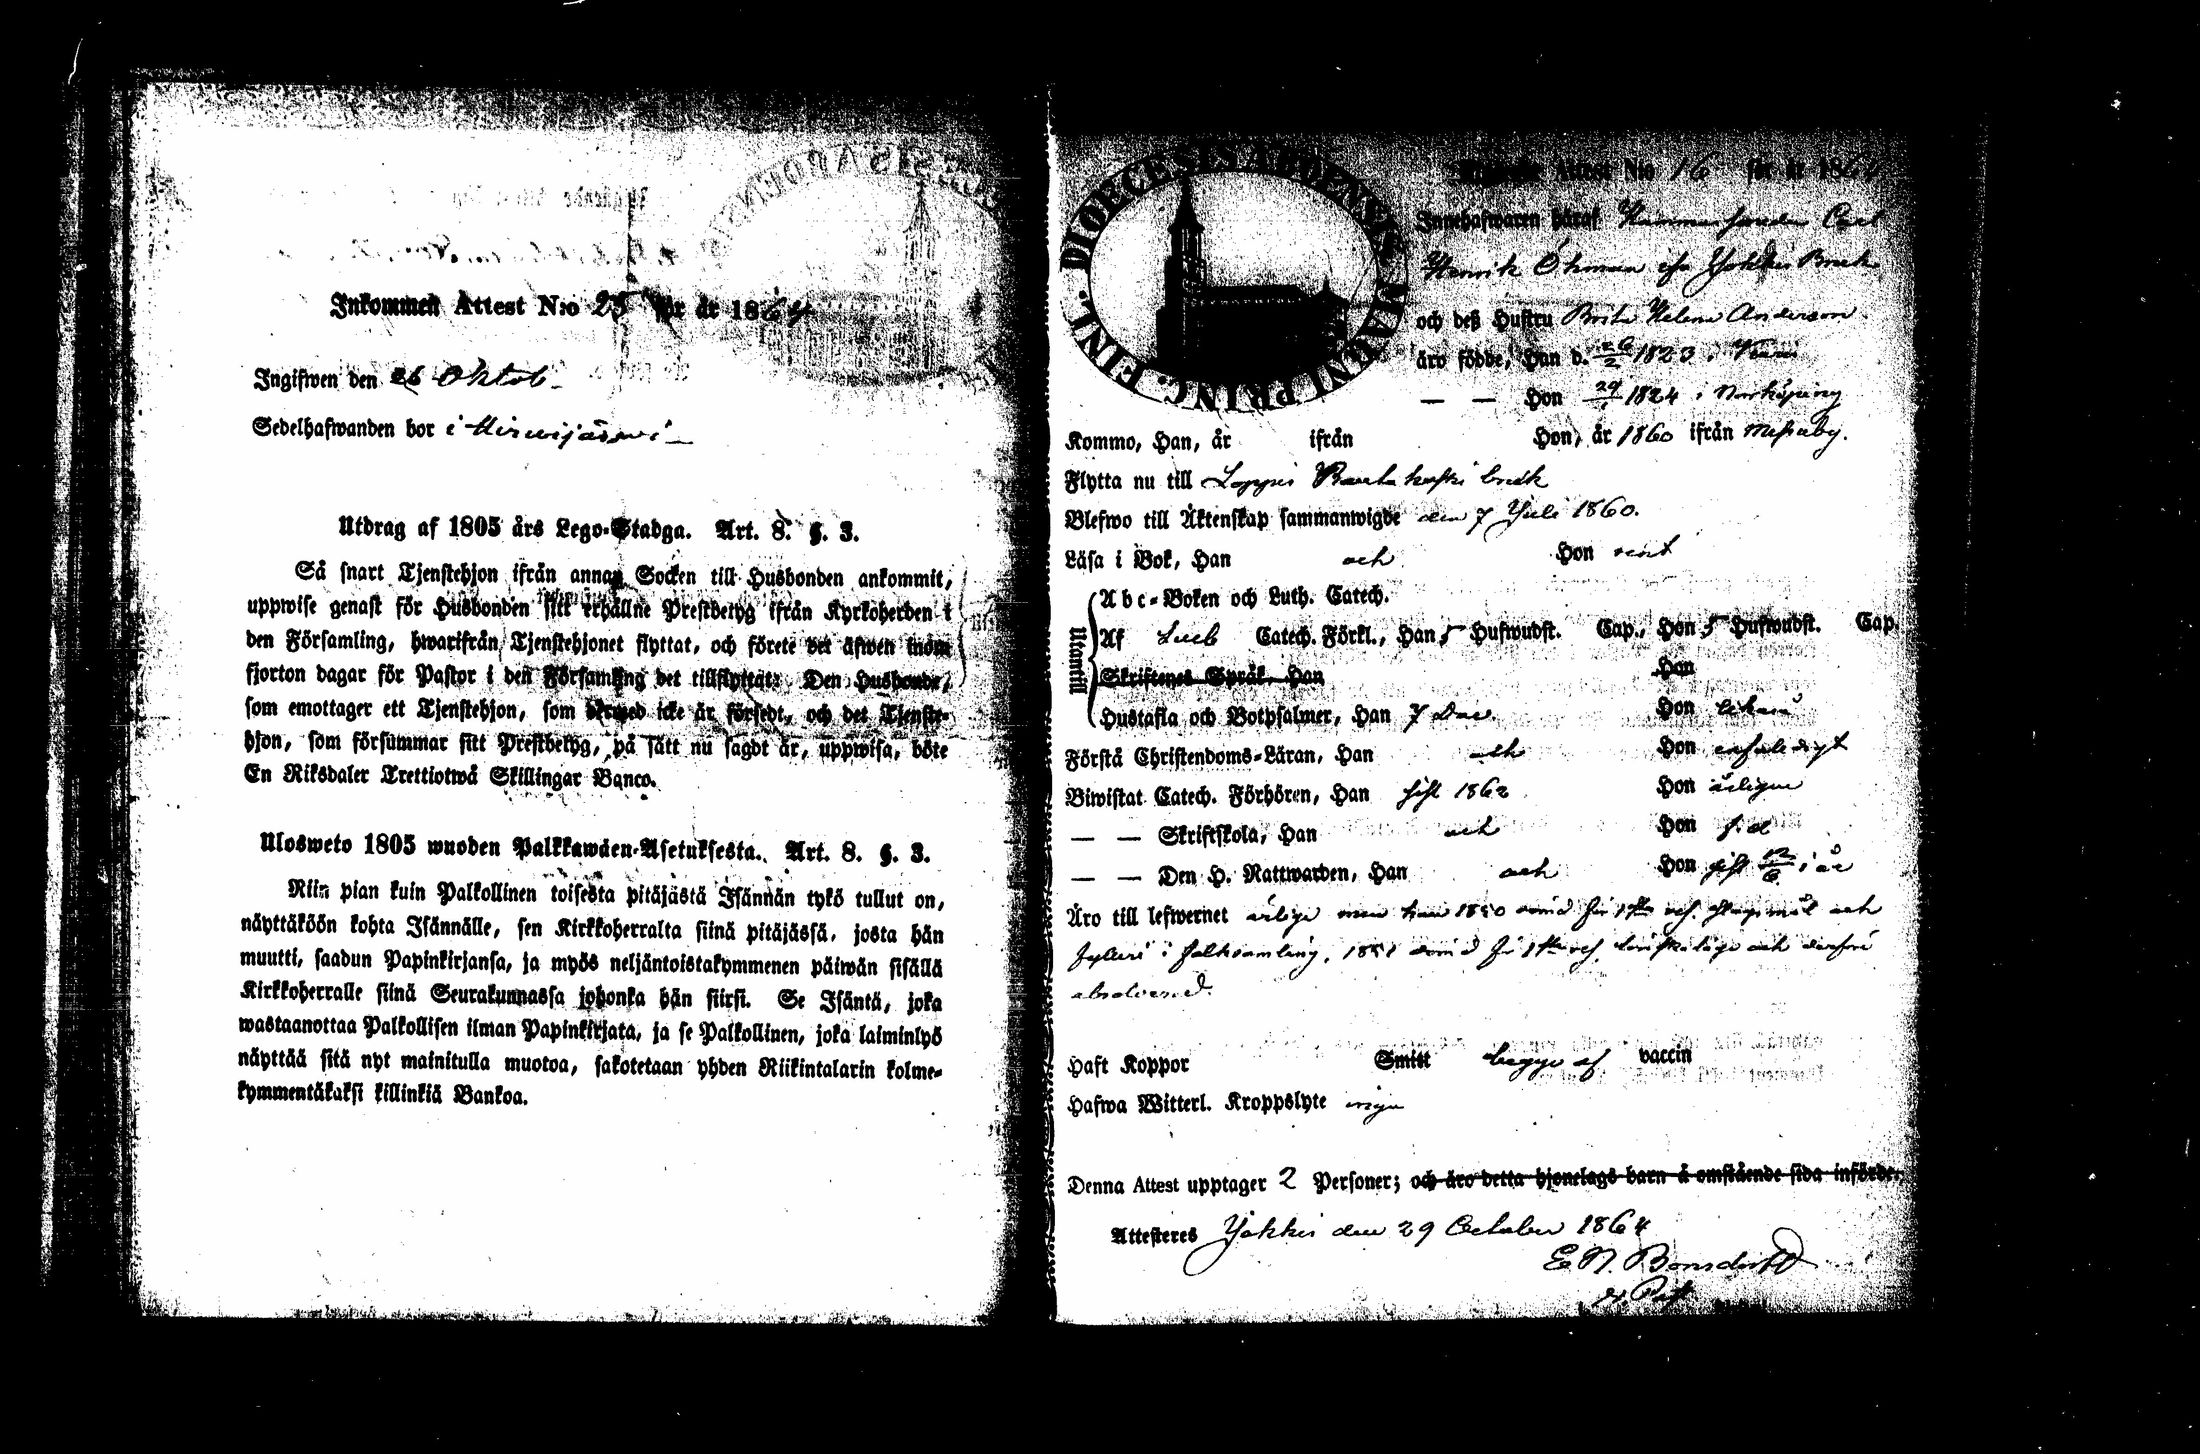 Inkommen Attest N:o 25 för år 1864
Ingifwen den 26 Oktob.
Sedelhafwanden bor i Hirwijärwi
Utdrag af 1805 års Lego-Stadga. Art. 8. §. 3.
Så snart Tjenstehjon ifrån annan Socken till Husbonden ankommit,
uppwise genast för Husbonden sitt erhållne Prestbetyg ifrån Kyrkoherden i
den Församling, hwarifrån Tjenstehjonet flyttat, och förete det äfwen inom
fjorton dagar för Pastor i den Församling det tillflyttat: Den Husbonde,
som emottager ett Tjenstehjon, som dermed icke är försedt, och det Tjenste-
hjon, som försummar sitt Prestbetyg, på sätt nu sagdt är, uppwisa, böte
En Riksdaler Trettiotwå Skillingar Banco.
Ulosweto 1805 wuoden Palkkawäen-Asetuksesta. Art. 8. §. 3.
Niin pian kuin Palkollinen toisesta pitäjästä Isännän tykö tullut on,
näyttäköön kohta Isännälle, sen Kirkkoherralta siinä pitäjässä, josta hän
muutti, saadun Papinkirjansa, ja myös neljäntoistakymmenen päiwän sisällä
Kirkkoherralle siinä Seurakunnassa johonka hän siirsi. Se Isäntä, joka
wastaanottaa Palkollisen ilman Papinkirjata, ja se Palkollinen, joka laiminlyö
näyttää sitä nyt mainitulla muotoa, sakotetaan yhden Riikintalarin kolme-
kymmentäkaksi killinkiä Bankoa.
DIOECESIS ABOENSIS MAGNI PRINC. FINL.
Attest N:o 16 för år 1864
Innehafwaren häraf Hammarsmeden Carl
Henrik Öhman ifr Jokkis Bruk
och deß Hustru Brita Helena Anderson
äro födde, Han d. 26/2 1823 i
— — Hon 29/ 1824 i Norrköping
Kommo, Han, år ifrån Hon, år 1860 ifrån Meßuby.
Flytta nu till Loppis Rautakoski bruk
Blefwo till Äktenskap sammanwigde den 7 Juli 1860.
Läsa i Bok, Han och Hon rent
Utantill
Abc-Boken och Luth. Catech.
Af Sveb Catech. Förkl., Han 5 Hufwudst. Cap., Hon 5 Hufwudst. Cap.
Skriftenes Språk, Han Hon
Hustafla och Botpsalmer, Han 7 Dav. Hon likaså
Förstå Christendoms-Läran, Han och Hon enfaldigt
Biwistat Catech. Förhören, Han sist 1862 Hon årligen
— — Skriftskola, Han och Hon f.d.
— — Den H. Nattwarden, Han och Hon sist 12/6 i år
Äro till lefwernet ärliga men han 1850 dömd för 1sta res. slagsmål och
fylleri i folksamling, 1851 dömd för 1sta res. och derför
absolverad.
Haft Koppor Smitt begge af vaccin
Hafwa Witterl. Kroppslyte inga
Denna Attest upptager 2 Personer; och äro detta hjonelags barn å omstående sida införde.
Attesteres Jokkis den 29 October 1864
E N. Bonsdorff